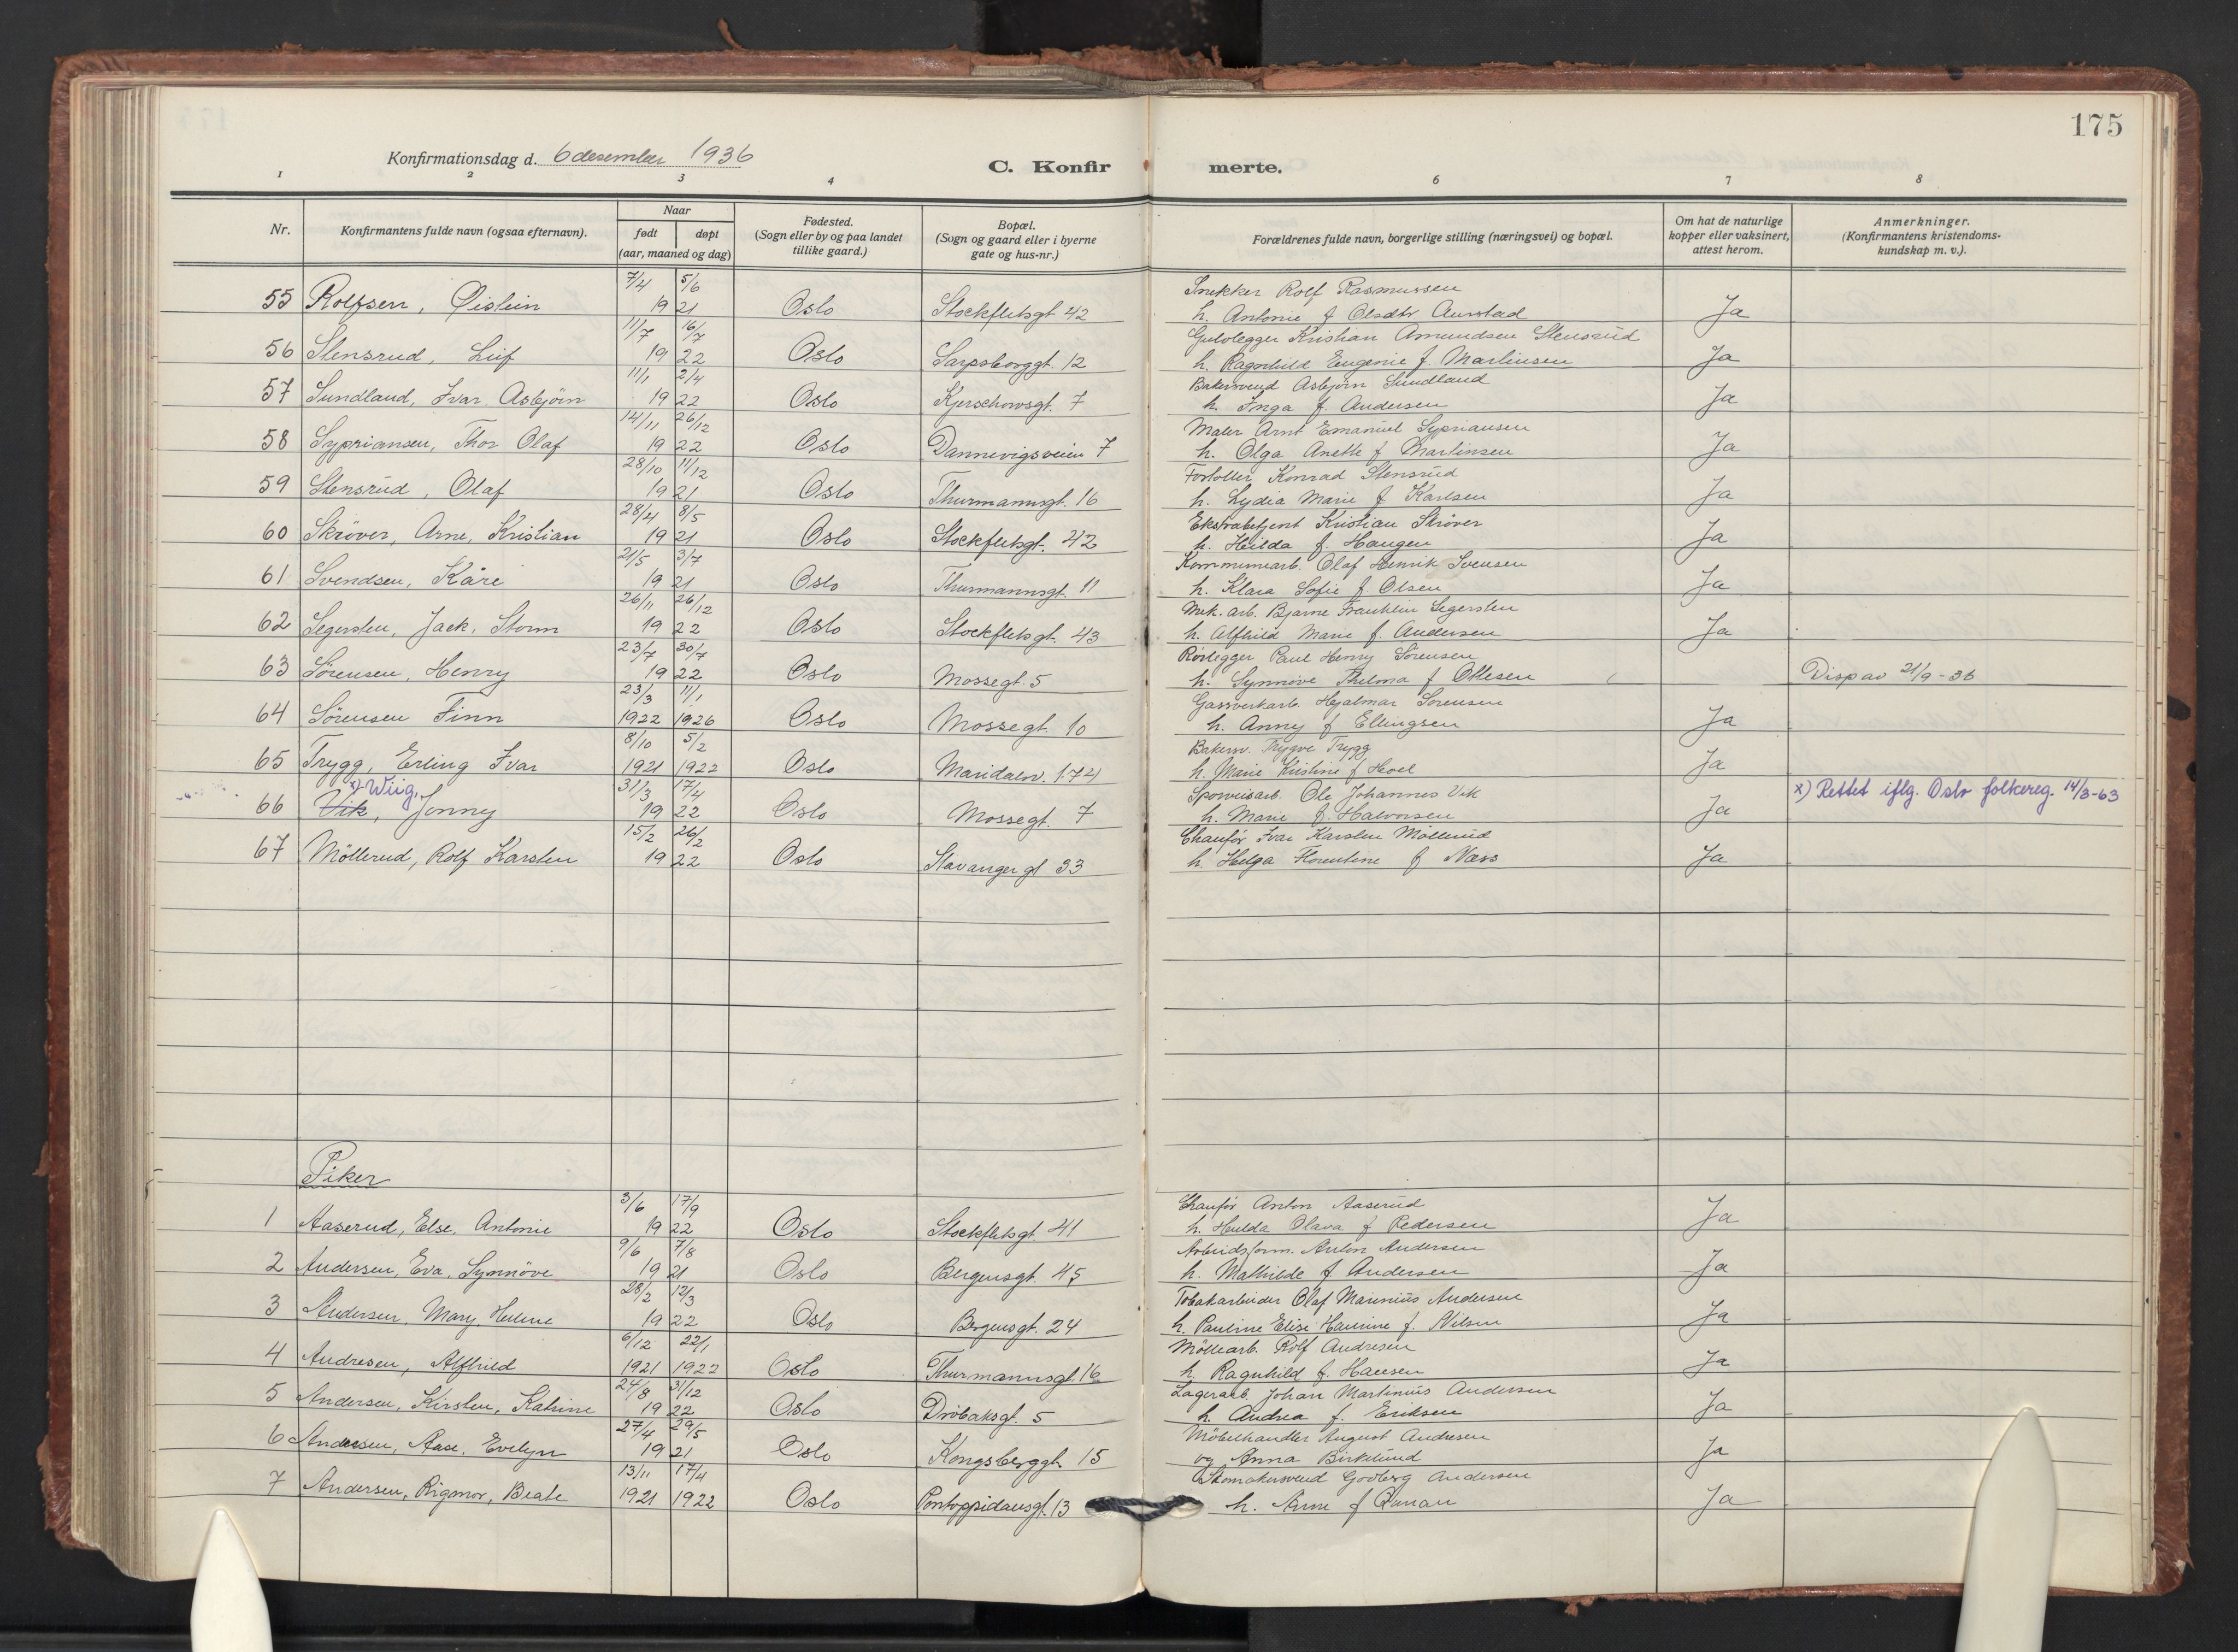 175
Konfirmationsdag d. 6 desember 1936
C. Konfir merte.
1 2 3 4 6 7 8
Nr.
Konfirmantens fulde navn (ogsaa efternavn).
Naar
født døpt
(aar, maaned og dag)
Fødested.
(Sogn eller by og paa landet
tillike gaard.)
Bopæl.
(Sogn og gaard eller i byerne
gate og hus-nr.)
Forældrenes fulde navn, borgerlige stilling (næringsvei) og bopæl.
Om hat de naturlige
kopper eller vaksinert,
attest herom.
Anmerkninger.
(Konfirmantens kristendoms-
kundskap m. v.).
7/4 5/6 Snekker Rolf Rasmussen
55 Rolfsen, Øistein 19 21 Oslo Stockfletsgt 42 h. Antonie f Olsdtr Aurstad Ja
11/7 16/7 Gulvlegger Kristian Amundsen Stensrud
56 Stensrud, Leif 19 22 Oslo Sarpsborggt. 12 h. Ragnhild Eugenie f. Martinsen Ja
11/1 2/4 Bakersvend Asbjørn Sundland
57 Sundland, Ivar Asbjörn 19 22 Oslo Kjerschowsgt. 7 h. Inga f. Andersen Ja
14/11 26/12 Maler Arnt Emanuel Sypriansen
58 Sypriansen, Thor Olaf 19 22 Oslo Dannevigsveien 7 h. Olga Anette f Martinsen Ja
28/10 11/12 Konrad Stensrud
59 Stensrud, Olaf 19 21 Oslo Thurmannsgt. 16 h. Lydia Marie f. Karlsen Ja
28/4 8/5 Ekstrabetjent Kristian Skröver
60 Skröver, Arne, Kristian 19 21 Oslo Stockfletsgt. 42 h. Hilda f. Haugen Ja
21/5 3/7 Kommunearb. Olaf Henrik Svensen
61 Svendsen, Kåre 19 21 Oslo Thurmannsgt. 11 h. Klara Sofie f Olsen Ja
26/11 26/12 Mek. arb. Bjarne Franklin Segersten
62 Segersten, Jack, Storm 19 22 Oslo Stockfletsgt. 43 h. Alfhild Marie f. Andersen Ja
23/7 30/7 Rörlegger Paul Henry Sörensen
63 Sörensen, Henry 19 22 Oslo Mossegt. 5 h. Synnöve Thelma f Ottesen Disp av 21/9-36
23/3 11/1 Gassverkarb. Hjalmar Sörensen
64 Sörensen Finn 1922 1926 Oslo Mossegt. 10 h. Anny f Ellingsen Ja
8/10 5/2 Bakersv. Trygve Trygg
65 Trygg, Erling Ivar 1921 1922 Oslo Maridalsv. 174 h. Marie Kristine f Hoel Ja
x) Wiig, 31/3 17/4 Sporveisarb. Ole Johannes Vik x) Rettet iflg. Oslo folkereg. 14/3-63
66 Vik, Jonny 19 22 Oslo Mossegt. 7 h. Marie f. Halvorsen Ja
15/2 26/2 Chauför Ivar Karsten Möllerud
67 Möllerud, Rolf Karsten 19 22 Oslo Stavangergt 33 h. Helga Florentine f Næss Ja
Piker
3/6 17/9 Chauför Anton Aaserud
1 Aaserud, Else, Antonie 19 22 Oslo Stockfletsgt. 41 h. Hulda Olava f Pedersen Ja
9/6 7/8 Arbeidsform. Anton Andersen
2 Andersen, Eva, Synnöve 19 21 Oslo Bergensgt. 45 h. Mathilde f. Andersen Ja
28/2 12/3 Tobakarbeider Olaf Marenius Andersen
3 Andersen, Mary, Helene 19 22 Oslo Bergensgt. 24 h. Pauline Elise f. Nilsen Ja
6/12 22/1 Möllearb. Rolf Andresen
4 Andresen, Alfhild 1921 1922 Oslo Thurmannsgt. 16 h. Ragnhild f. Hansen Ja
24/8 31/12 Lagerarb. Johan Martinius Andersen
5 Andersen, Kirsten, Katrine 19 22 Oslo Dröbaksgt. 5 h. Andrea f. Eriksen Ja
27/4 29/5 Möbelhandler August Andresen
6 Andresen, Aase, Evelyn 19 21 Oslo Kongsberggt. 15 og Anna Birkelund Ja
13/11 17/4 Skomakersvend Godberg Andersen
7 Andersen, Rigmor, Beate 1921 1922 Oslo Pontoppidansgt. 13 h. f Ja